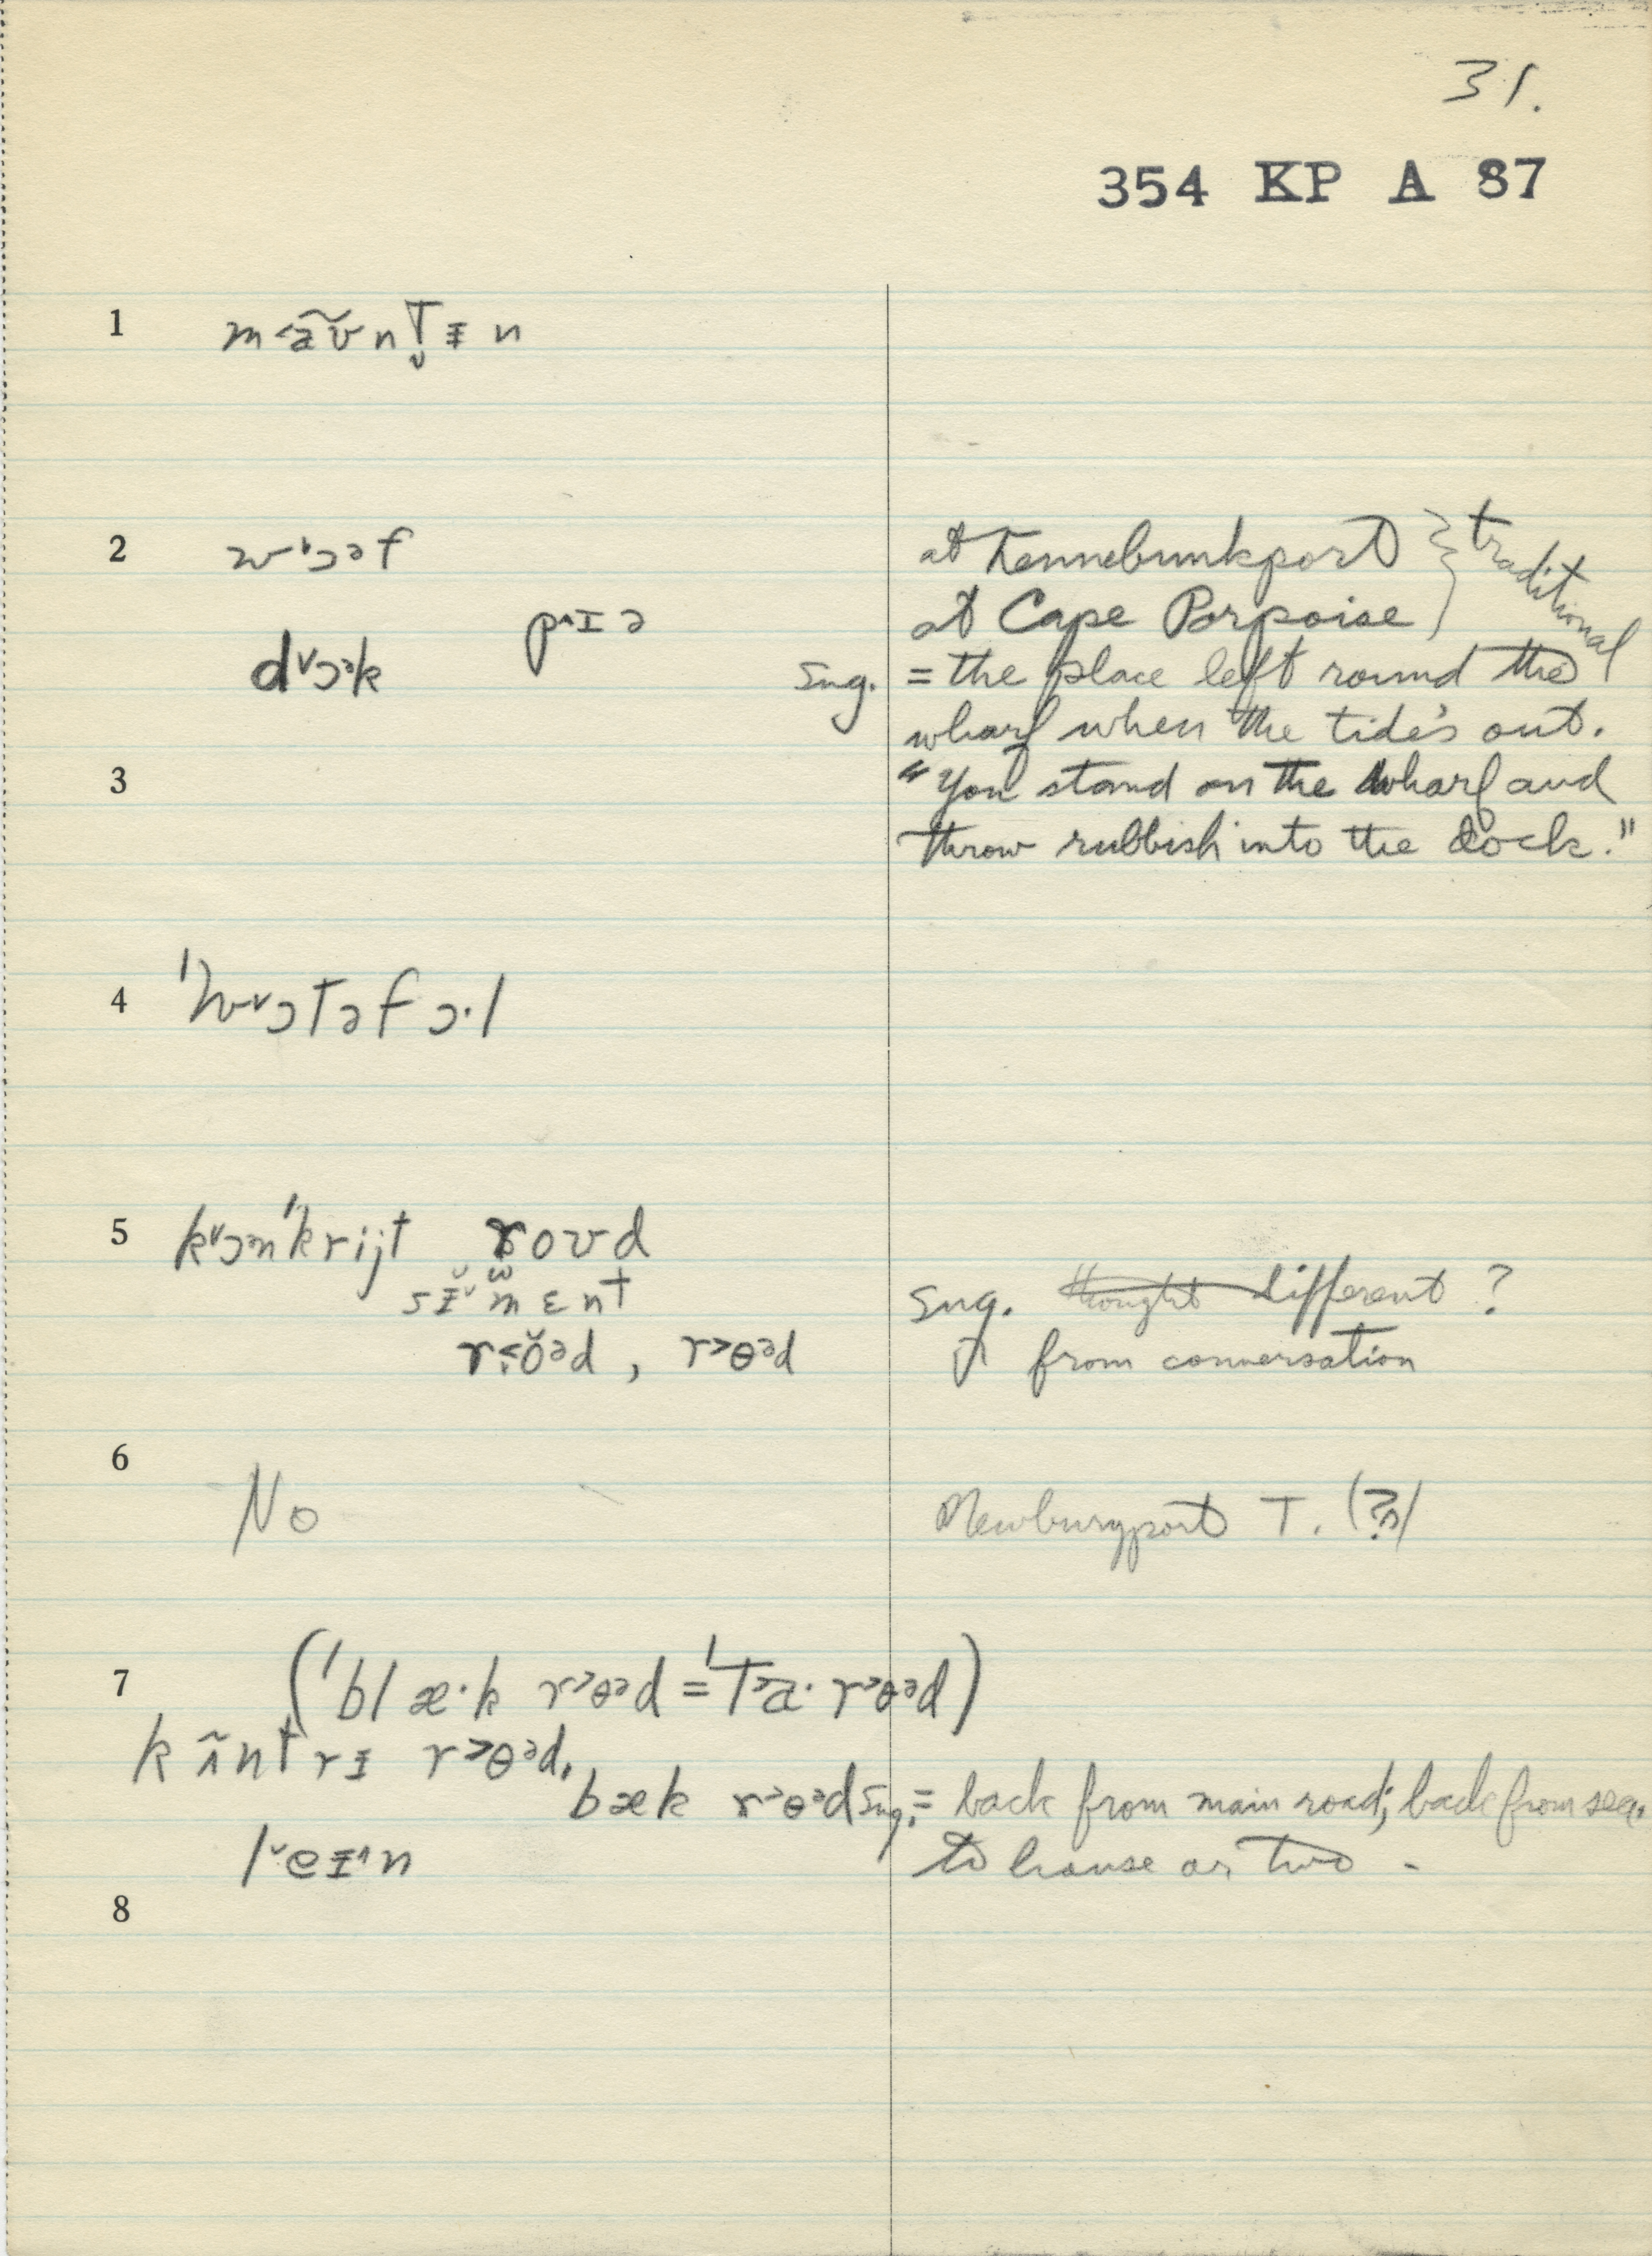 31.
354 KP A 87
1 m˂ãʊ̃nT̬ᵻn
2 wˈɔəf at Kennebunkport } traditional
pˆɪə at Cape Porpoise
d˅ɔᵊk sug. = the place left round the
wharf when the tide's out.
3 "You stand on the wharf and
throw rubbish into the dock."
4 ˈw˅ɔTəfɔ·l
5 k˅ɔnˈkrijt roʊd
sᵻ˅mɛnt sug. thought different ?
r˂ŏəd, r˃ɵəd from conversation
6
No Newburyport T. (?)
7 (ˈblæ·k r˃ɵəd = ˈT˃a· r˃ɵəd)
kʌ̃ntrᵻ r˃ɵəd.
bæk r˃ɵəd sug. = back from main road; back from sea.
l˅eᵻˆn to house or two -
8